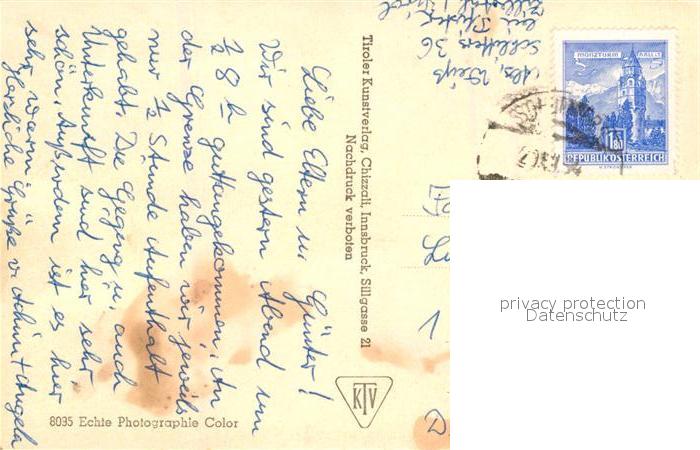 Liebe Eltern u. Günter!
Wir sind gestern Abend um
1/2 8 h gut angekommen. An
der Grenze haben wir jeweils
nur 1/2 Stunde Aufenthalt
gehabt. Die Gegeng u. auch
Unterkunft sind hier sehr
schön. Außerdem ist es hier
sehr warm.
Herzliche Grüße v. Achim + Angela
Abs.
Schlitters 36
bei
Zillertal/Tirol
Tiroler Kunstverlag, Chizzali, Innsbruck, Sillgasse 21
Nachdruck verboten
KTV
8035 Echte Photographie Color
MÜNZTURM HALL i. T.
1.80
S
REPUBLIK ÖSTERREICH
1
D
privacy protection
Datenschutz